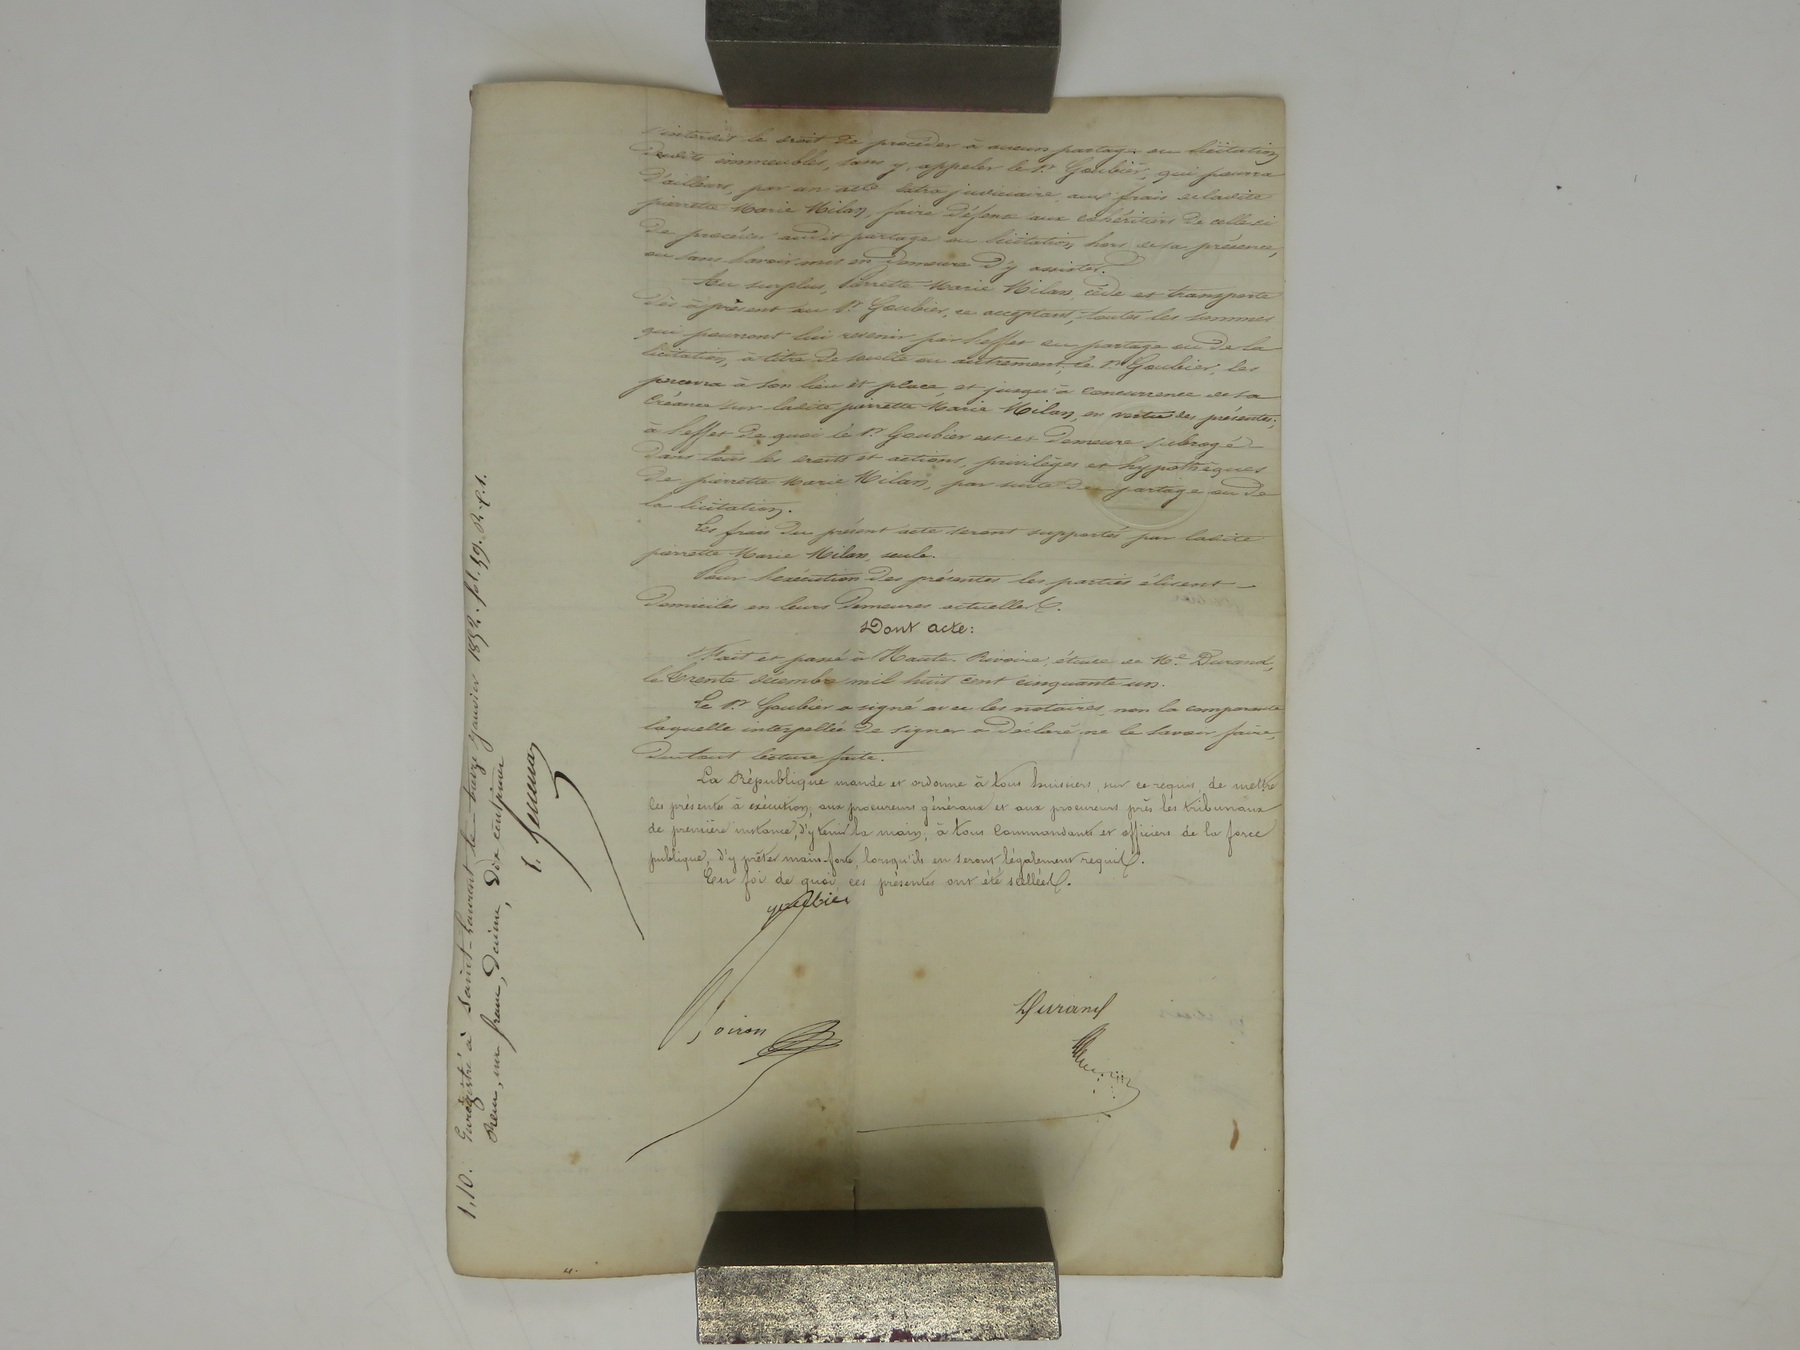 s'interdit le droit de procéder à aucun partage ou licitation
desdits immeubles, sans y appeler le Sr. Goubier, qui pourra
d'ailleurs, par un acte extra judiciaire, aux frais de ladite
pierrette Marie Milan, faire défense aux cohéritiers de celle-ci
de procéder audit partage ou licitation, hors de sa présence,
ou sans l'avoir mis en demeure d'y assister.
Au surplus, Pierrette Marie Milan, cède et transporte
dès à présent au Sr. Goubier, ce acceptant, toutes les sommes
qui pourront lui revenir par l'effet du partage ou de la
licitation, à titre de soulte ou autrement; le Sr. Goubier, les
percevra à son lieu et place, et jusqu'à concurrence de sa
créance sur ladite pierrette Marie Milan, en vertu des présentes;
à l'effet de quoi le Sr. Goubier est et demeure subrogé
dans tous les droits et actions, privilèges et hypothèques
de pierrette Marie Milan, par suite du partage ou de
la licitation.
Les frais du présent acte seront supportés par ladite
pierrette Marie Milan, seule.
Pour l'exécution des présentes les parties élisent
domiciles en leurs demeures actuelles.
Dont acte:
Fait et passé à Haute-Rivoire, étude de Me. Durand,
le trente décembre mil huit cent cinquante un.
Le Sr. Goubier a signé avec les notaires, non la comparante
laquelle interpellée de signer a déclaré ne le savoir faire,
du tout lecture faite.
La République mande et ordonne à tous huissiers, sur ce requis, de mettre
les présentes à exécution; aux procureurs généraux et aux procureurs près les tribunaux
de première instance, d'y tenir la main; à tous Commandants et officiers de la force
publique, d'y prêter main-forte, lorsqu'ils en seront légalement requis.
En foi de quoi, ces présentes ont été scellées.
goubier
Poiron
Durand
1,10. Enregistré à Saint-Laurent le janvier 1852. fol. 59. R. C. 1.
Reçu, un franc, décime, dix centimes
4.